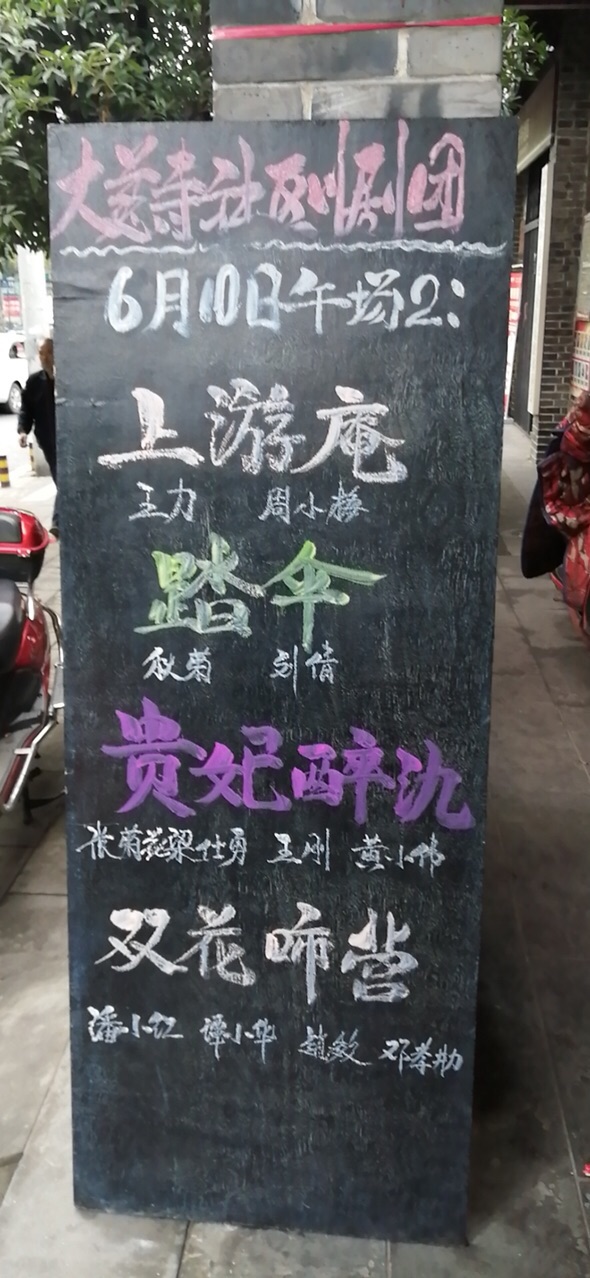 大慈寺社区川剧团
6月10日午场2:
上游庵
王力 周小梅
踏伞
秋菊 刘倩
贵妃醉氿
张菊花 梁仕勇 王刚 黄小伟
双花啼营
潘小红 谭小华 赵敏 邓孝勋